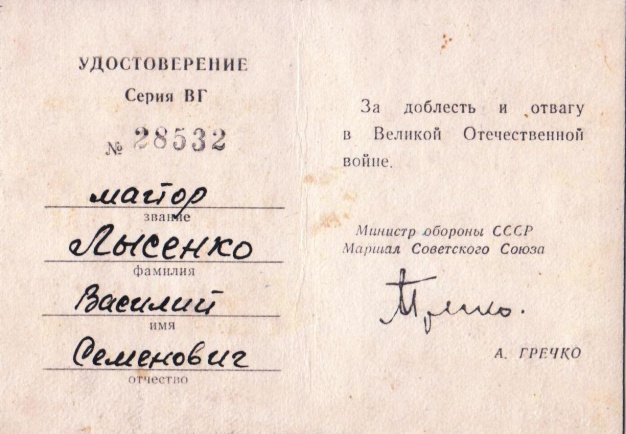 УДОСТОВЕРЕНИЕ
Серия ВГ
№ 28532
майор
звание
Лысенко
фамилия
Василий
имя
Семенович
отчество
За доблесть и отвагу
в Великой Отечественной
войне.
Министр обороны СССР
Маршал Советского Союза
Гречко.
А. ГРЕЧКО